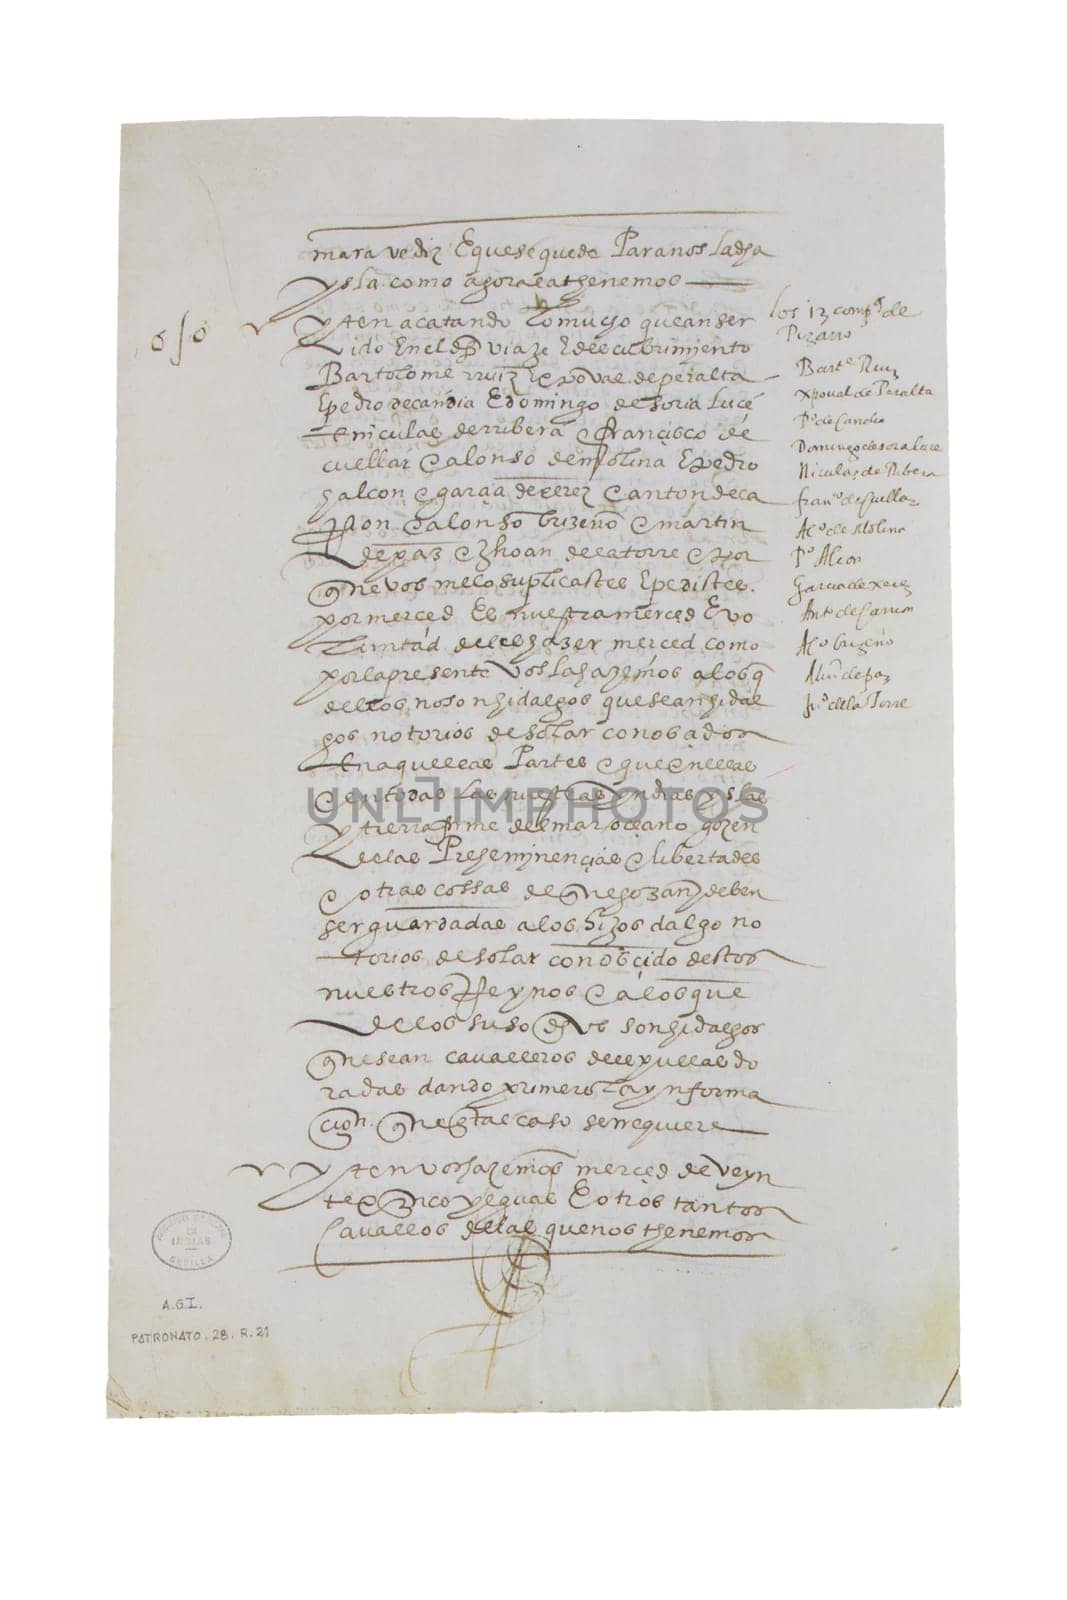 maravediz E que se quede Para nos la dha
ysla como agora la thenemos
o/o
yten acatando lo mucho que an ser
vido En el dho viaze E descubrimiento
Bartolome rruiz E xpoval de peralta
E pedro de candia E domingo de soria luce
E niculas de rribera E francisco de
cuellar E alonso de molina E pedro
halcon E garcia de xerez E anton de ca
rrion E alonso brizeño E martin
de paz E Jhoan de la torre E por
que vos me lo suplicastes E pedistes
por merced Es nuestra merced E vo
luntad de les hazer merced como
por la presente vos la hazemos a los q
dellos no son hidalgos que sean hidal
gos notorios de solar conosçido
En aquellas Partes E que En ellas
E en todas las nuestras yndias yslas
y tierra firme del mar oceano gozen
de las Preheminençias E libertades
E otras cossas de que gozan y deben
ser guardadas a los hizos dalgo no
torios de solar conosçido destos
nuestros Reynos E a los que
de los suso dhos son hidalgos
que sean cavalleros despuelas do
radas dando primero la ynforma
cion que En tal caso se rrequiere
yten vos hazemos merced de veyn
te E çinco yeguas E otros tantos
cavallos de las que nos thenemos
los 13 comps de
Pizarro
Barte Ruiz
xpoval de Peralta
Po de Candia
Domingo de sora luce
Niculas de Ribera
franco de Cuellar
Alo de Molina
Po Alcon
Garcia de xerez
Anto de Carrion
Alo brizeño
Mrn de paz
Jno de la Torre
ARCHIVO GENERAL
DE
INDIAS
SEVILLA
A.G.I.
PATRONATO. 28. R. 21
UNLIMPHOTOS